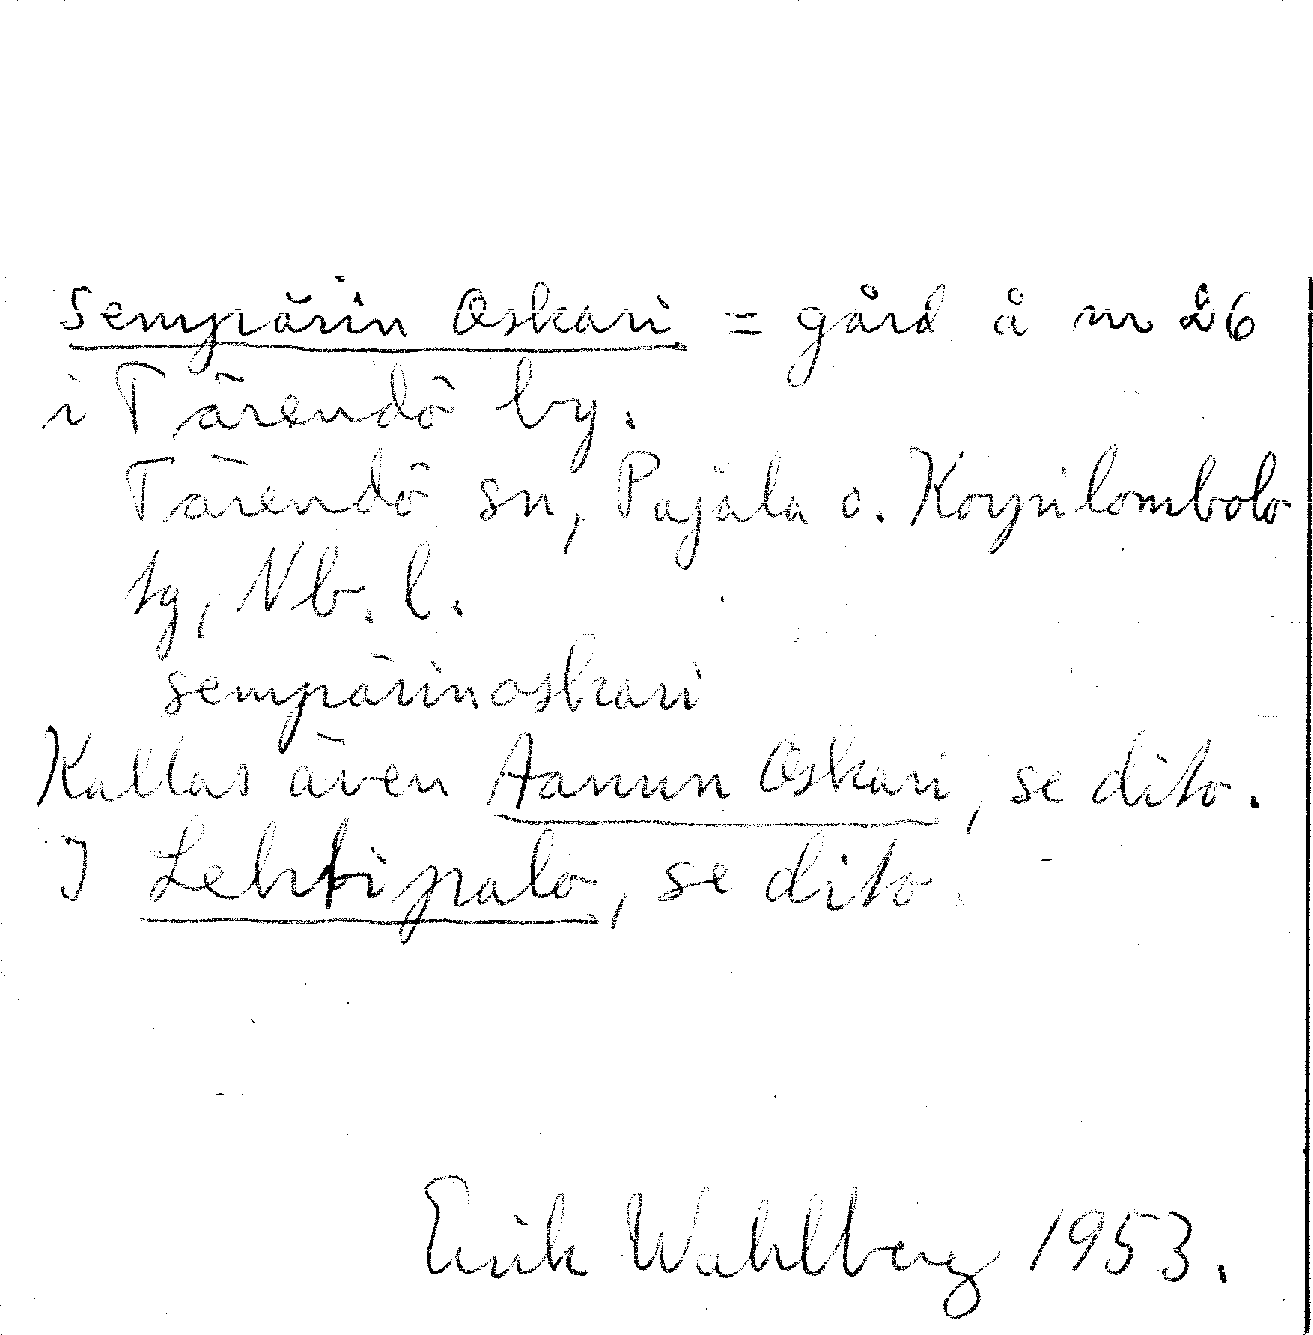 Sempärin Oskari = gård å nr 26
i Tärendö by.
Tärendö sn, Pajala o. Korpilombolo
tg, Nb. l.
sempärinoskari
Kallas även Aanun Oskari, se dito.
I Lehtipalo, se dito.
Erik Wahlberg 1953.